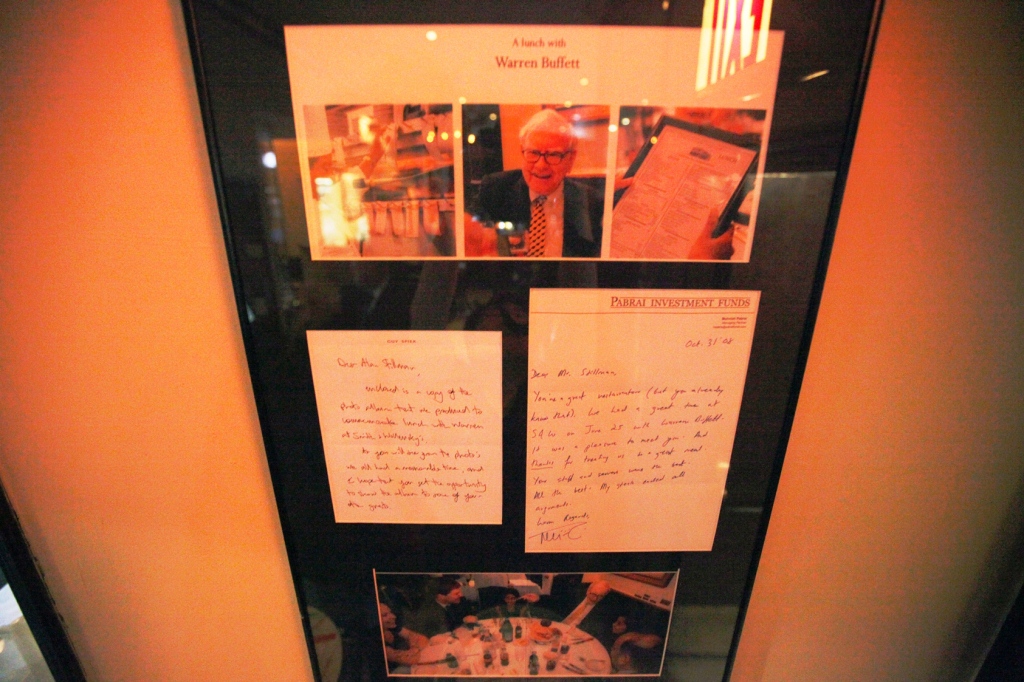 A lunch with
Warren Buffett
PABRAI INVESTMENT FUNDS
Oct. 31 '08
Dear Mr. Stillman,
You're a great restaurateur (but you already
know that). We had a great time at
S&W on June 25 with Warren Buffett.
It was a pleasure to meet you. And
thanks for treating us to a great meal.
Your staff and service were
All the best. My steak ended all
arguments.
Warm Regards,
Dear Alan Stillman,
enclosed is a copy of the
photo album that we produced to
commemorate lunch with Warren
at Smith & Wollensky's.
As you will see from the photo's
we all had a memorable time, and
I hope that you get the opportunity
to show the album to some of your
other guests.